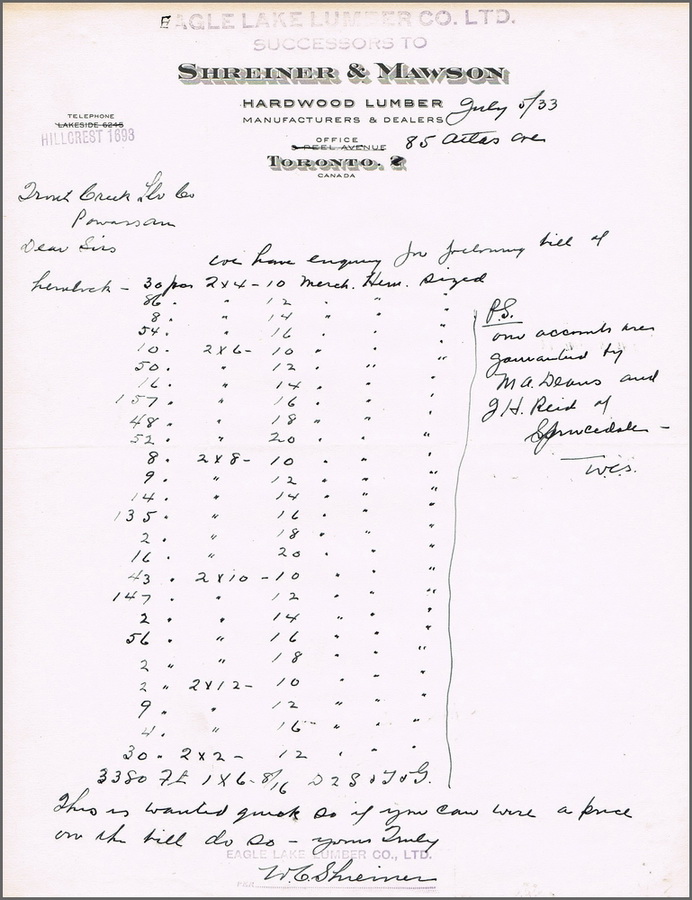 EAGLE LAKE LUMBER CO. LTD.
SUCCESSORS TO
SHREINER & MAWSON
HARDWOOD LUMBER
MANUFACTURERS & DEALERS
July 5/33
TELEPHONE
LAKESIDE 6246
HILLCREST 1693
OFFICE
PEEL AVENUE
85 Atlas ave
TORONTO. 
CANADA
Trout Creek Lbr Co
Powassan
Dear Sirs
We have enquiry for following bill of
hemlock - 30 pcs 2x4 - 10 Merch. Hem. sized
86 " " 12 " " "
8 " " 14 " " "
54 " " 16 " " "
10 " 2x6 - 10 " " "
50 " " 12 " " "
16 " " 14 " " "
157 " " 16 " " "
48 " " 18 " " "
52 " " 20 " " "
8 " 2x8 - 10 " " "
9 " " 12 " " "
14 " " 14 " " "
135 " " 16 " " "
2 " " 18 " " "
16 " " 20 " " "
43 " 2x10 - 10 " " "
147 " " 12 " " "
2 " " 14 " " "
56 " " 16 " " "
2 " " 18 " " "
2 " 2x12 - 10 " " "
9 " " 12 " " "
4 " " 16 " " "
30 " 2x2 - 12 " " "
3380 Ft 1x6 - 8/16 D2S & T&G.
P.S.
our accounts are
guaranteed by
M A. Deans and
J H. Reid of
Sprucedale -
W.C.S.
This is wanted quick so if you can wire a price
on the bill do so - yours Truly
EAGLE LAKE LUMBER CO., LTD.
W C Shreiner
PER